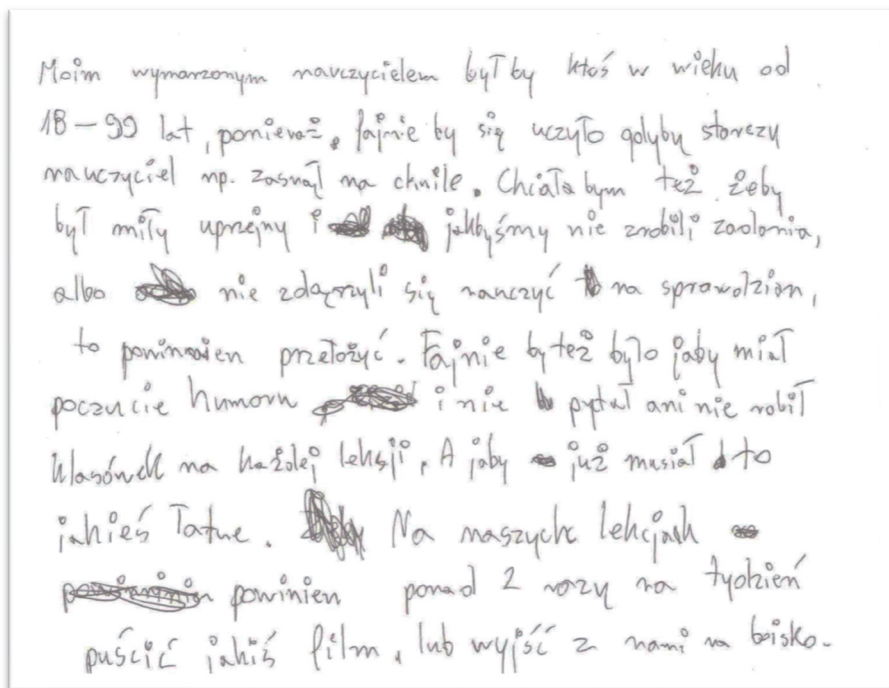 Moim wymarzonym nauczycielem byłby ktoś w wieku od
18 – 99 lat, ponieważ, fajnie by się uczyło gdyby starczy
nauczyciel np. zasnął na chwile. Chciała bym też żeby
był miły uprzejny i jakbyśmy nie zrobili zadania,
albo nie zdązrzyli się nauczyć na sprawdzian,
to powinnien przełożyć. Fajnie by też było jaby miał
poczucie humoru i nie pytał ani nie robił
klasówek na każdej leksji. A jaby już musiał to
jakieś łatwe. Na naszych lekcjach
powinien ponad 2 razy na tydzień
puścić jakiś film, lub wyjść z nami na boisko.